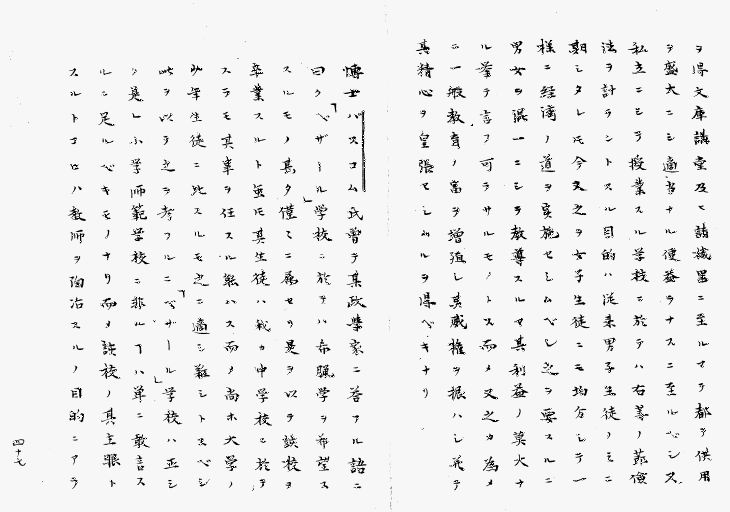 ヲ得文庫講堂及ヒ諸機器ニ至ルマテ都テ供用
ヲ盛大ニシ適当ナル便益ヲナスニ至ルベシ又
私立ニシテ授業スル学校ニ於テハ右等ノ
法ヲ計ラントスル目的ハ従来男子生徒ノミニ
期シタレ𪜈今又之ヲ女子生徒ニモ均分シテ一
様ニ経済ノ道ヲ実施セシムベシ之ヲ要スルニ
男女ヲ混一ニシテ教導スルヤ其利益ノ莫大ナ
ル挙テ言フ可ラサルモノトス而メ又之カ為メ
ニ一般教育ノ富ヲ増殖シ其威権ヲ振ハシ并テ
其精心ヲ皇張セシムルヲ得ベキナリ
博士バスコム氏曽テ某政学家ニ答フル語ニ
曰ク「ベザール」学校ニ於テハ希臘学ヲ希望ス
スルモノ甚タ僅ミニ属セリ是ヲ以テ該校ヲ
卒業スルト雖𪜈其生徒ハ我カ中学校ニ於テ
スラモ其事ヲ任スル能ハス而メ尚ホ大学ノ
少年生徒ニ比スルモ之ニ適シ難シトスベシ
此ヲ以テ之ヲ考フルニ「ベザール」学校ハ正シ
ク是レ小学師範学校ニ非ルヿハ単ニ敢言ス
ルニ足ルベキモノナリ而メ該校ノ其主眼ト
スルトコロハ教師ヲ陶冶スルノ目的ニアラ
四十七